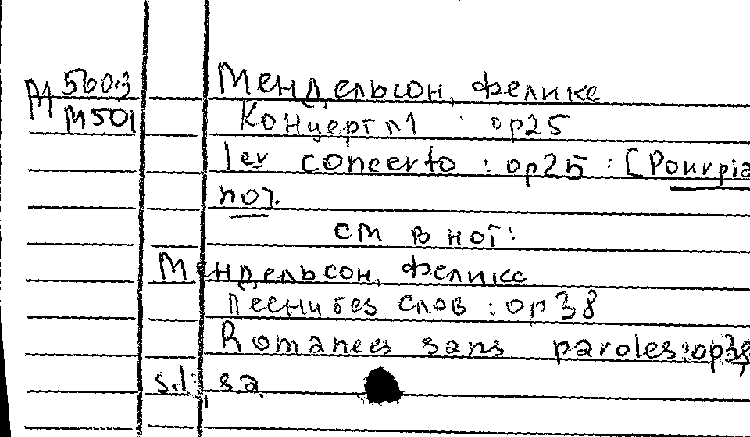 М 560.3 Мендельсон, Феликс
М501 Концерт n1 op25
1er concerto : op25 : [Pour pia
no].
см в нот:
Мендельсон, Феликс
Песни без слов : op38
Romances sans paroles : op38
s.l., s.a.